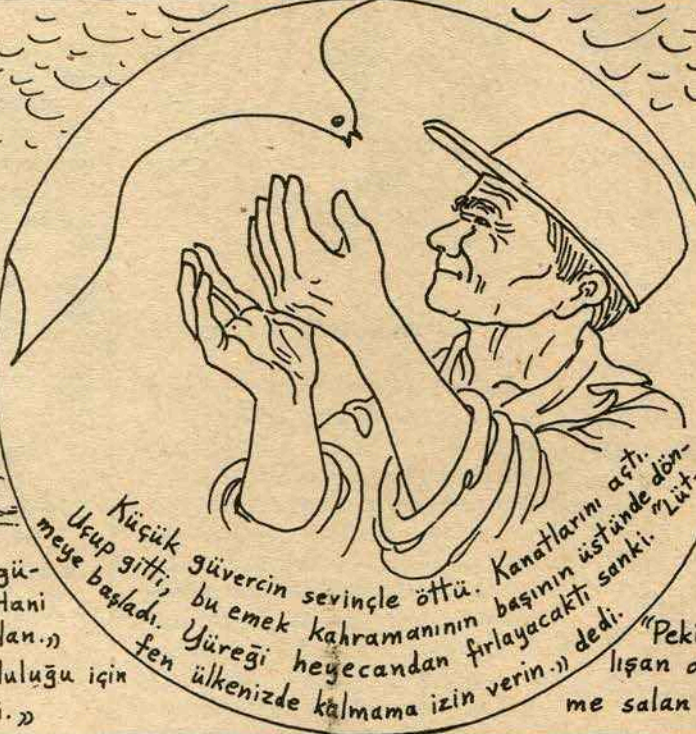 Küçük güvercin sevinçle öttü. Kanatlarını açtı.
Uçup gitti, bu emek kahramanının başının üstünde dön-
meye başladı. Yüreği heyecandan fırlayacaktı sanki. "Lüt-
fen ülkenizde kalmama izin verin.» dedi.
gü-
lan.»
luluğu için
i.»
"Peki
lışan
me salan